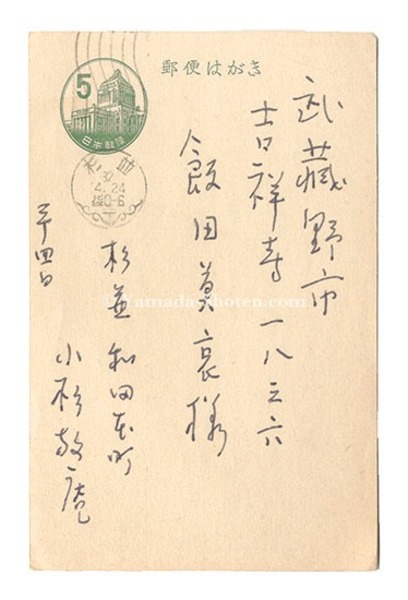 郵便はがき
5
日本郵便
杉並
32
4.24
後0-6
武蔵野市
吉祥寺一八三六
飯田莫哀様
杉並和田本町
小杉放庵
二十四日
© Yamada-Shoten.com